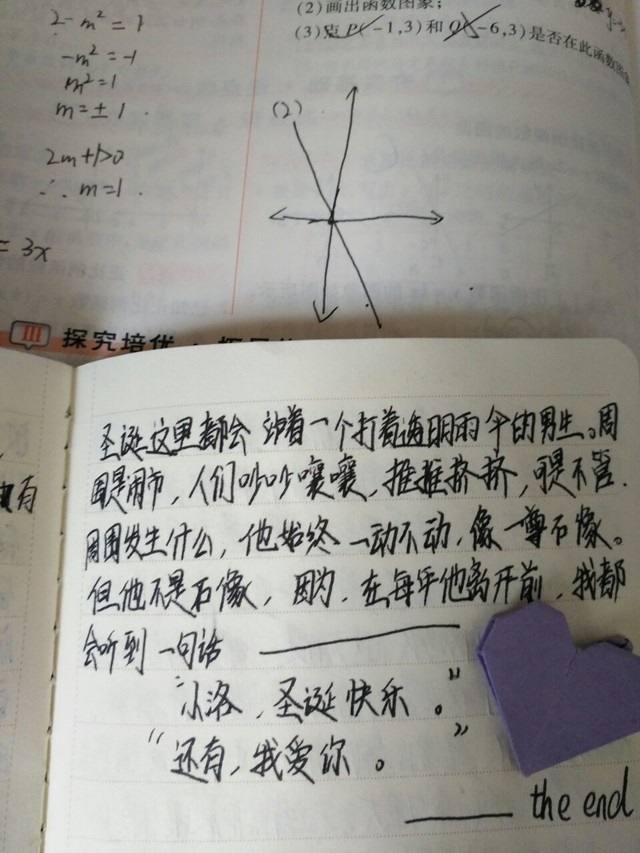 2-m²=1
-m²=-1
m²=1
m=±1.
2m+1>0
∴m=1.
=3x
(2)画出函数图象;
(3)点P(-1,3)和Q(-6,3)是否在此函数图
(2)
III 探究培优
有
圣诞这里都会站着一个打着透明雨伞的男生。周
围是闹市,人们吵吵嚷嚷,推推挤挤,可是不管
周围发生什么,他始终一动不动,像一尊石像。
但他不是石像,因为,在每年他离开前,我都
会听到一句话
"小洛,圣诞快乐。"
"还有,我爱你。"
the end